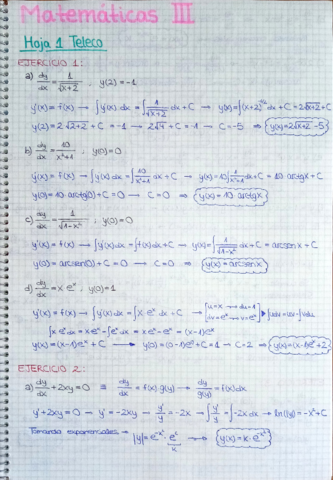 Matemáticas III
Hoja 1 Teleco
EJERCICIO 1:
a) dy/dx = 1/√(x+2) , y(2) = -1
y'(x) = f(x) → ∫y'(x) dx = ∫1/√(x+2) dx + C → y(x) = ∫(x+2)^(-1/2) dx + C = 2√(x+2) + C
y(2) = 2√(2+2) + C = -1 → 2√4 + C = -1 → C = -5 ⇒ y(x) = 2√(x+2) - 5
b) dy/dx = 10/(x²+1) , y(0) = 0
y'(x) = f(x) → ∫y'(x) dx = ∫10/(x²+1) dx + C → y(x) = 10∫1/(x²+1) dx + C = 10 arctgx + C
y(0) = 10 arctg(0) + C = 0 → C = 0 ⇒ y(x) = 10 arctgx
c) dy/dx = 1/√(1-x²) ; y(0) = 0
y'(x) = f(x) → ∫y'(x) dx = ∫f(x) dx + C → y(x) = ∫1/√(1-x²) dx + C = arcsen x + C
y(0) = arcsen(0) + C = 0 → C = 0 ⇒ y(x) = arcsen x
d) dy/dx = x eˣ , y(0) = 1
y'(x) = f(x) → ∫y'(x) dx = ∫x·eˣ dx + C → [u=x → du=1 dv=eˣ → v=eˣ] ∫udv = uv - ∫vdu
∫x eˣ dx = x eˣ - ∫eˣ dx = x eˣ - eˣ = (x-1)eˣ
y(x) = (x-1)eˣ + C → y(0) = (0-1)e⁰ + C = 1 → C = 2 ⇒ y(x) = (x-1)eˣ + 2
EJERCICIO 2:
a) dy/dx + 2xy = 0 ≡ dy/dx = f(x)·g(y) → dy/g(y) = f(x)dx
y' + 2xy = 0 → y' = -2xy → y'/y = -2x → ∫y'/y = ∫-2x dx → ln(|y|) = -x² + C
Tomando exponenciales → |y| = e^(-x²)·e^c → y(x) = k·e^(-x²)
k